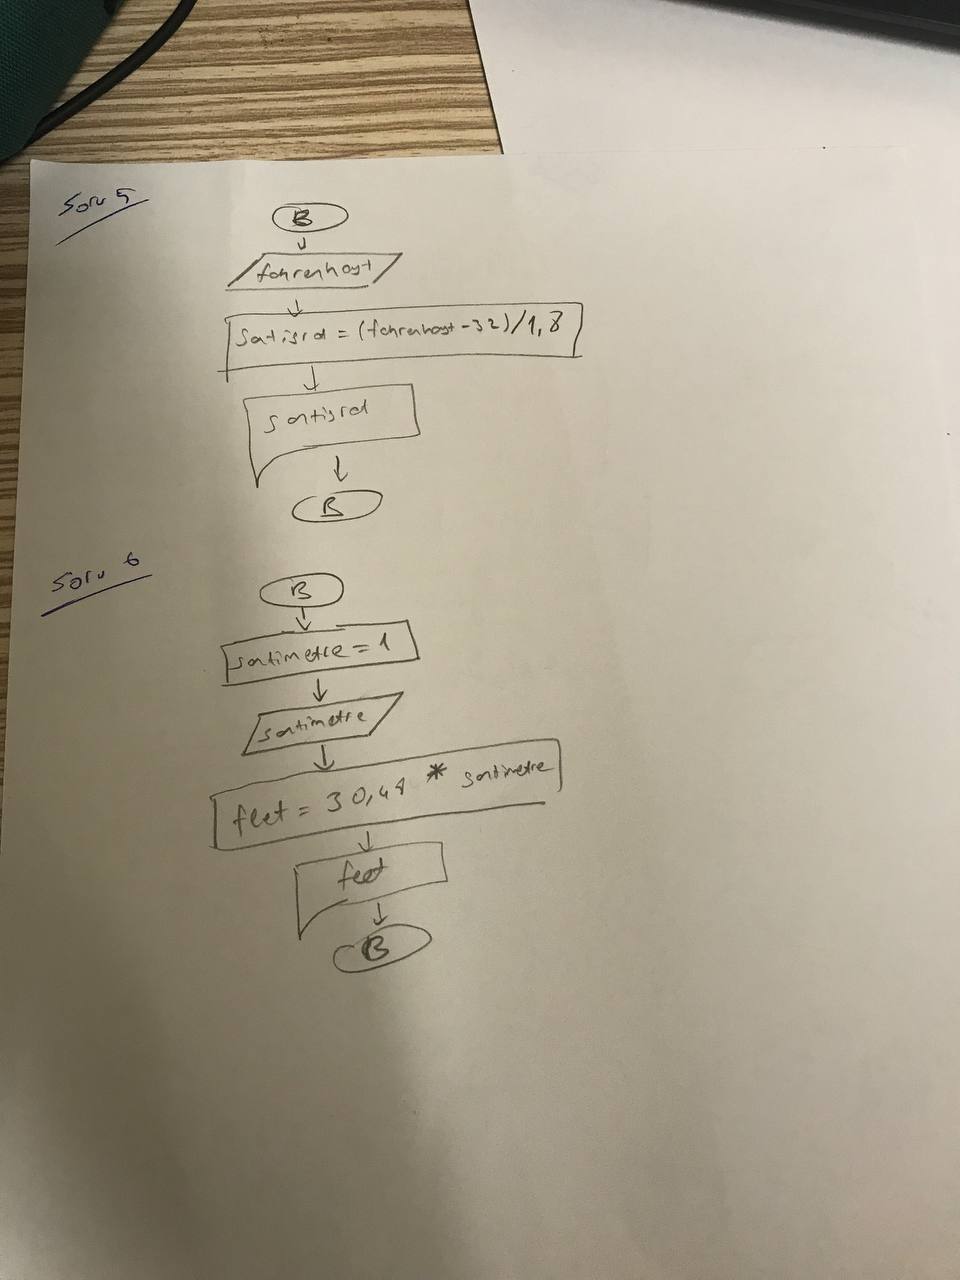 Soru 5
B
fahrenhayt
Satisrd = (fahrenhayt-32)/1,8
satisrd
B
Soru 6
B
santimetre = 1
santimetre
feet = 30,48 * santimetre
feet
B